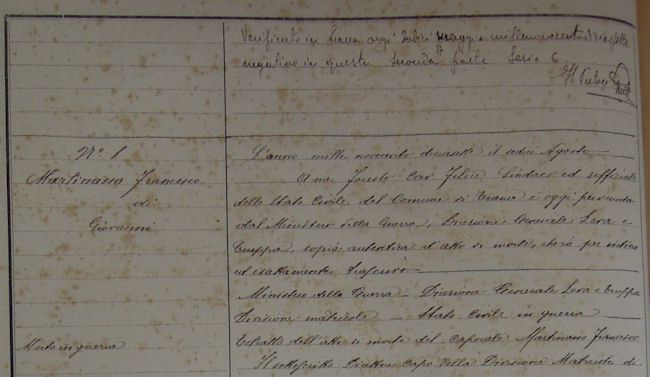 Verificato in Beura oggi dodici maggio millenovecentodiciasette
negativo in questa seconda parte Serie C
Il
N.º 1
Martinasso Francesco
di
Giovanni
Morto in guerra
L'anno mille novecento diciasette il sedici Agosto
A me Cav. Felice Sindaco ed uffiziale
dello Stato Civile del Comune di e oggi pervenuta
dal Ministero della Guerra, Direzione Generale Leva e
Truppa, copia autentica d'atto di morte, che io per intero
ed esattamente trascrivo
Ministero della Guerra - Direzione Generale Leva e Truppa
Divisione matricole - Stato Civile in guerra
Estratto dell'atto di morte del Caporale Martinasso Francesco
Il sottoscritto Direttore Capo della Divisione Matricole di